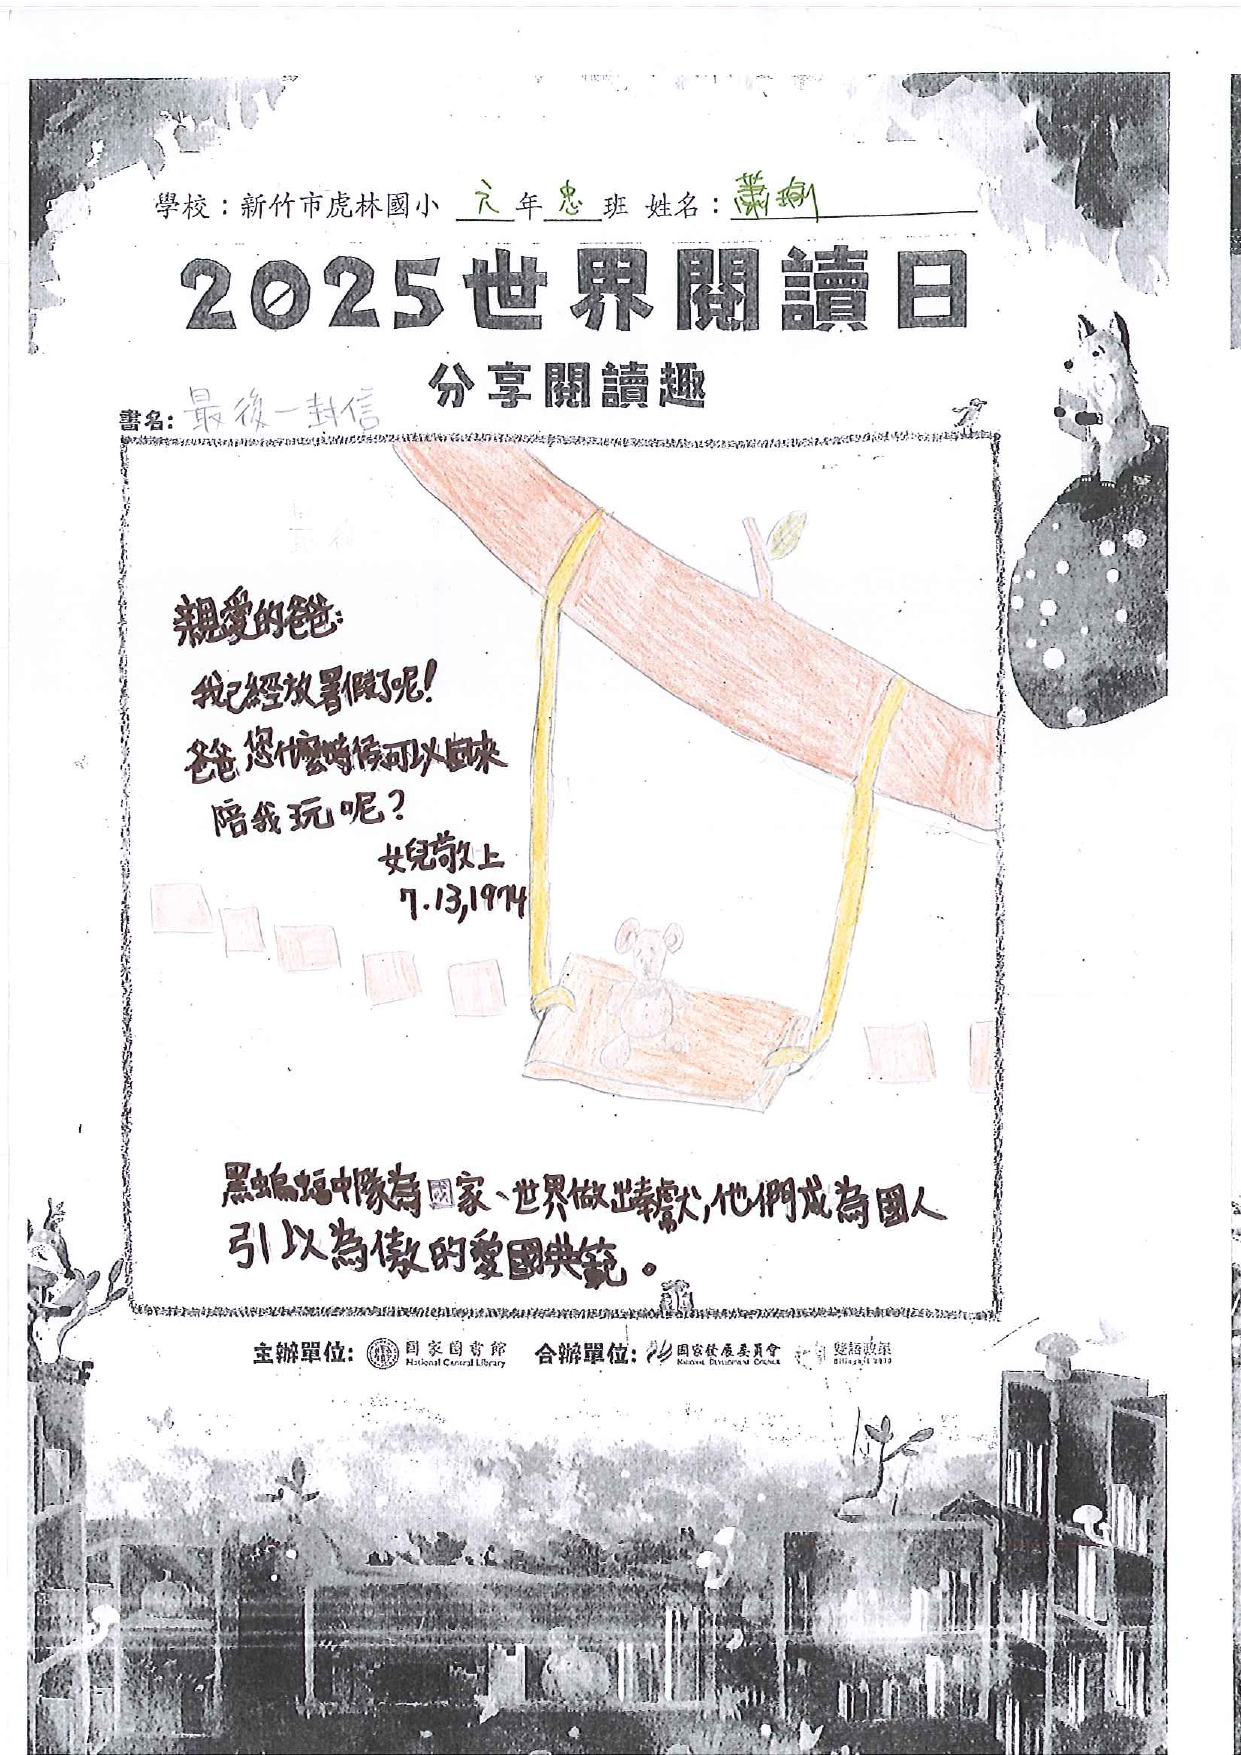 學校：新竹市虎林國小 六 年 忠 班 姓名：蕭
2025世界閱讀日
分享閱讀趣
書名: 最後一封信
親愛的爸爸:
我已經放暑假了呢!
爸爸您什麼時候可以回來
陪我玩呢?
女兒敬上
7.13,1974
黑蝙蝠中隊為國家、世界做出奉獻,他們成為國人
引以為傲的愛國典範。
主辦單位: 國家圖書館 National Central Library 合辦單位: 國家發展委員會 National Development Council 雙語政策